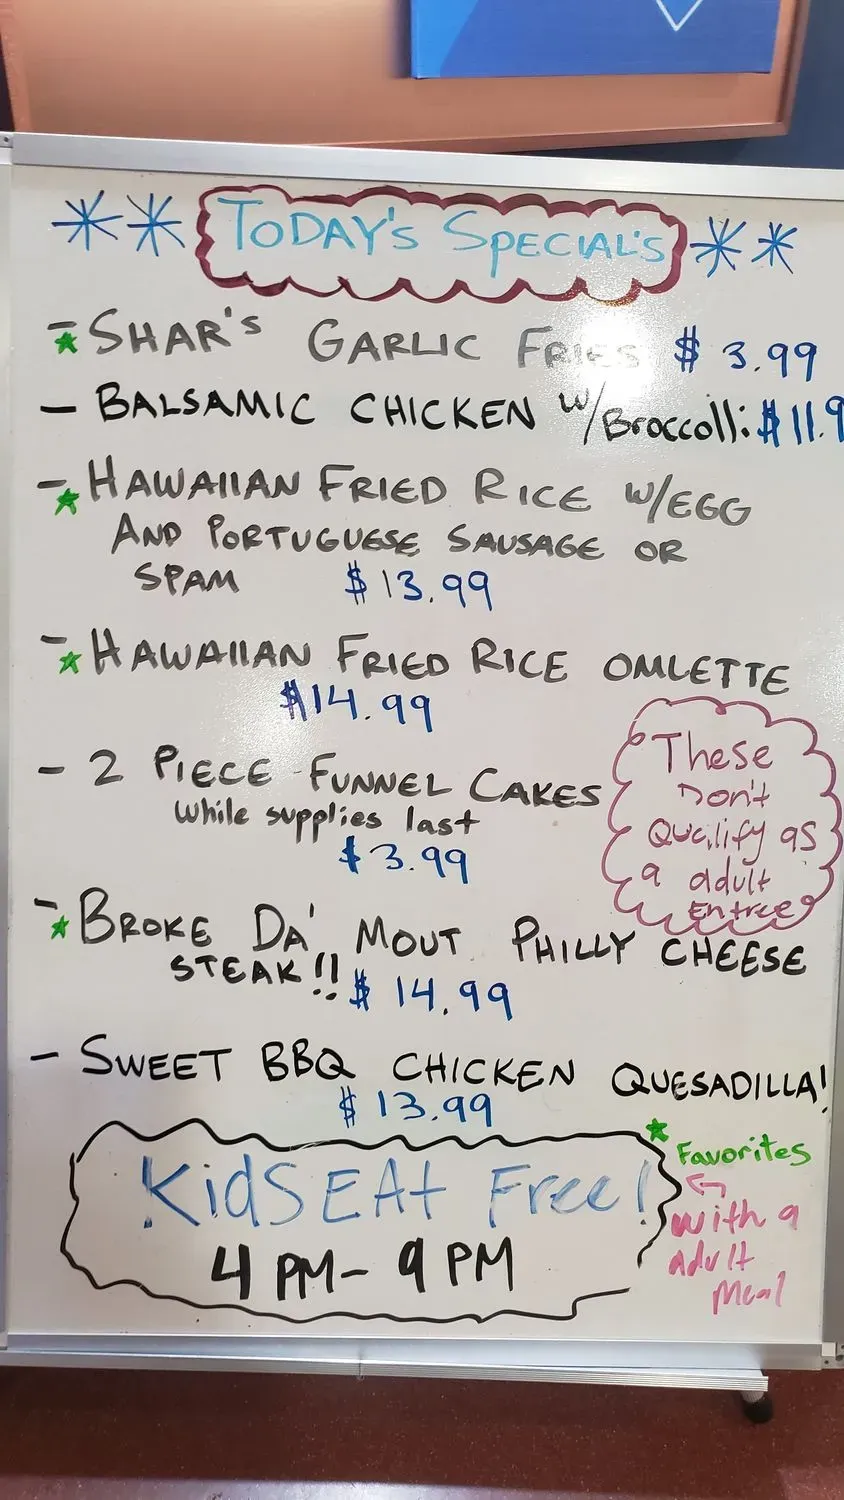 ** TODAY'S SPECIAL'S **
- SHAR'S GARLIC FRIES $ 3.99
- BALSAMIC CHICKEN W/Broccoli: $11.9
- HAWAIIAN FRIED RICE W/EGG
AND PORTUGUESE SAUSAGE OR
SPAM $13.99
- HAWAIIAN FRIED RICE OMLETTE
$14.99
- 2 PIECE FUNNEL CAKES
While supplies last
$3.99
These
Don't
Qualify as
a adult
Entree
- BROKE DA' MOUT PHILLY CHEESE
STEAK!! $14.99
- SWEET BBQ CHICKEN QUESADILLA!
$13.99
Favorites
KidS EAt Free!
4 PM- 9 PM
with a
adult
Meal